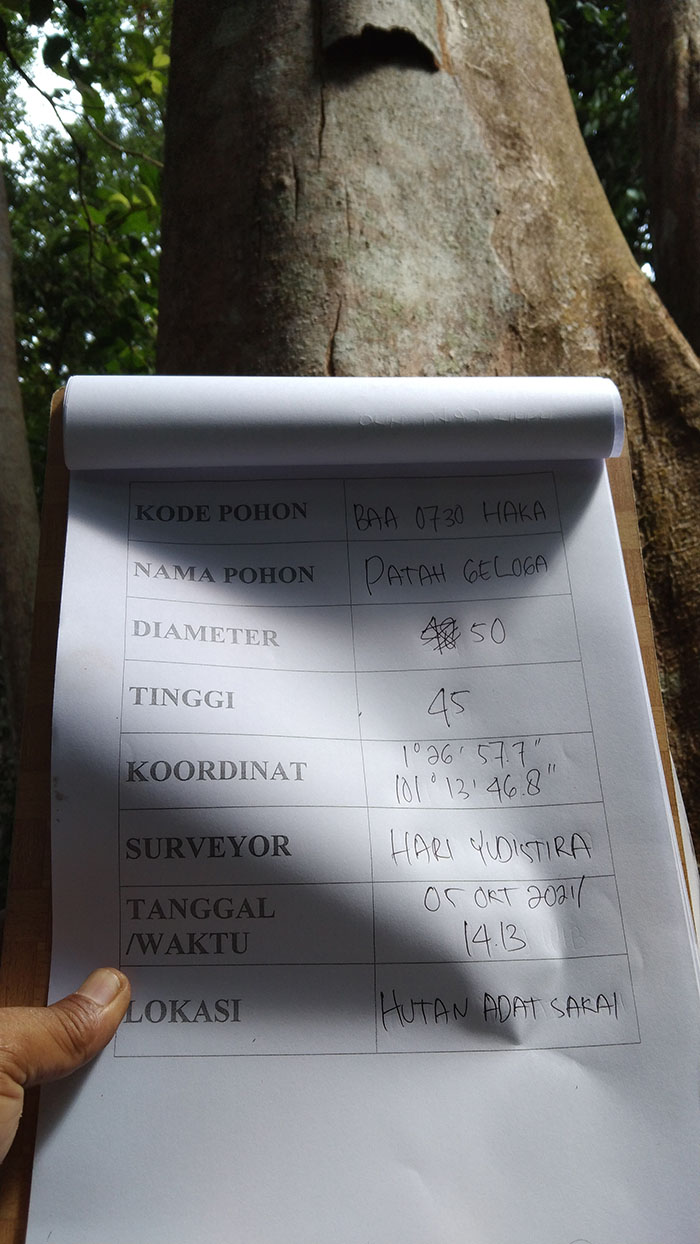 KODE POHON BAA 0730 HAKA
NAMA POHON PATAH GELOGA
DIAMETER 50
TINGGI 45
KOORDINAT 1°26'57.7"
101°13'46.8"
SURVEYOR HARI YUDISTIRA
TANGGAL 05 OKT 2021/
/WAKTU 14.13
LOKASI HUTAN ADAT SAKAI